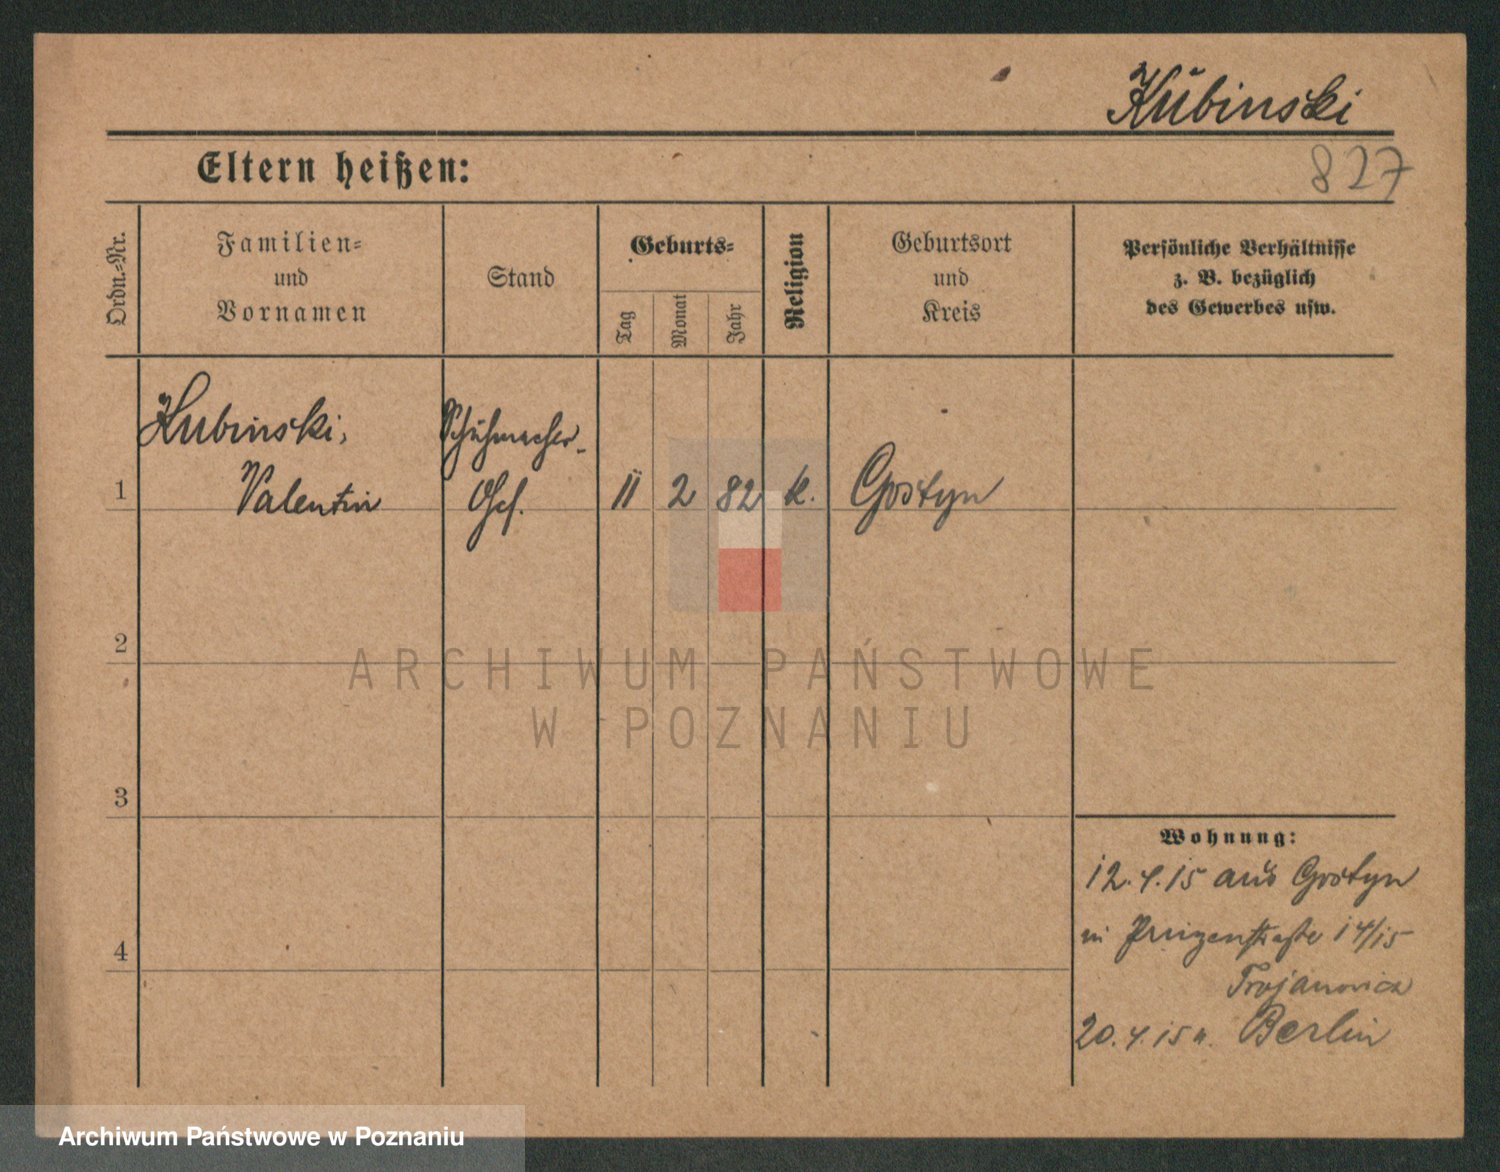 Kubinski
827
Eltern heißen:
Ordn.-Nr.
Familien-
und
Vornamen
Stand
Geburts-
Tag
Monat
Jahr
Religion
Geburtsort
und
Kreis
Persönliche Verhältnisse
z. B. bezüglich
des Gewerbes usw.
Kubinski,
Schuhmacher-
1
Valentin
Ges.
11
2
82
k.
Gostyn
2
ARCHIWUM PAŃSTWOWE
W POZNANIU
3
Wohnung:
12.4.15 aus Gostyn
in Prinzenstraße 14/15
Trojanowicz
4
20.4.15 n. Berlin
Archiwum Państwowe w Poznaniu